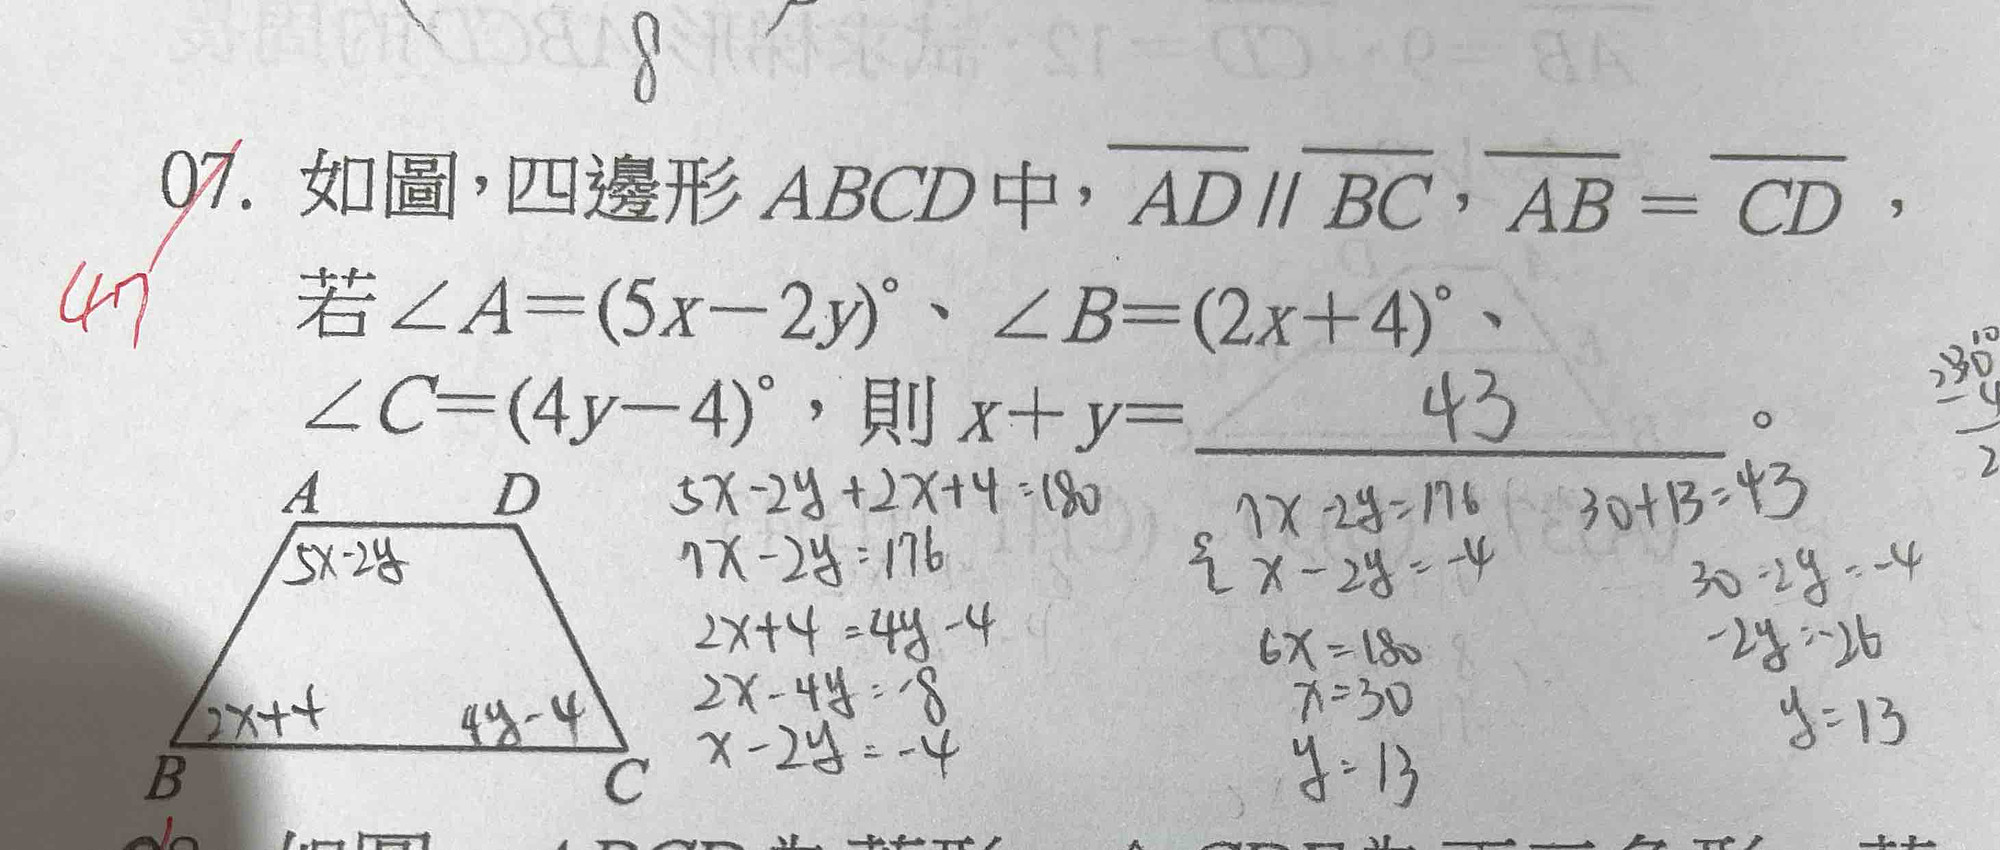 8
07. 如圖，四邊形 ABCD 中，AD // BC，AB = CD，
47
若∠A=(5x－2y)°、∠B=(2x＋4)°、
∠C=(4y－4)°，則 x＋y= 43 。
A D
5x-2y
2x+4 4y-4
B C
5x-2y+2x+4=180
7x-2y=176
2x+4=4y-4
2x-4y=-8
x-2y=-4
7x-2y=176
x-2y=-4
6x=180
x=30
y=13
30+13=43
30-2y=-4
-2y=-26
y=13